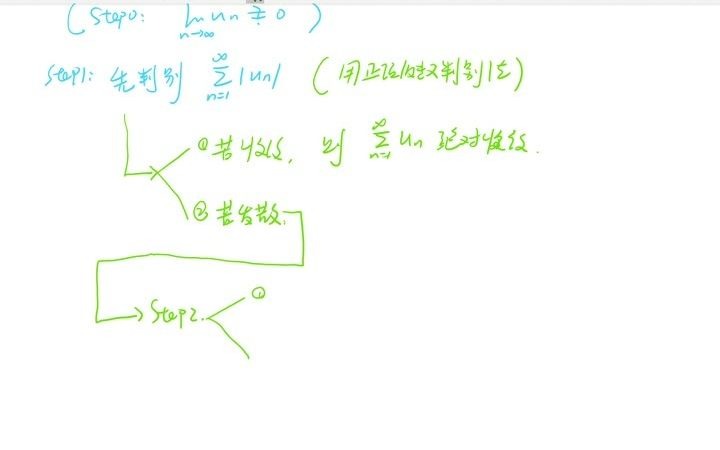 (Step0: lim n→∞ un ≟ 0 )
Step1: 先判别 ∑ n=1 ∞ |un| (用正项级数判别法)
① 若收敛, 则 ∑ n=1 ∞ un 绝对收敛.
② 若发散.
Step2. ①